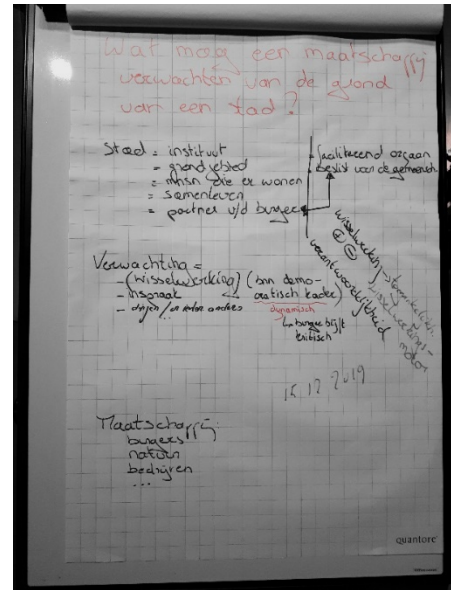 Wat mag een maatschappij
verwachten van de grond
van een stad?
Stad = instituut
= grondgebied
= mnsn die er wonen
= samenleven
= partner v/d burger
- faciliterend orgaan
- beslist voor de gemeensch.
wisselwerking
+ -
verantwoordelijkheid
wisselwerkings-
motor
Verwachting =
- (wisselwerking) (bnn demo-
cratisch kader)
- inspraak
dynamisch
↳ burger blijft
kritisch
15.12 2019
Maatschappij:
burgers
natuur
bedrijven
...
quantore